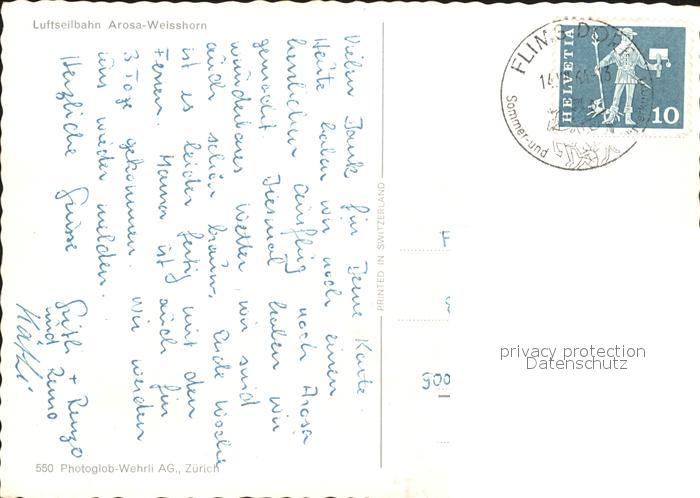 Luftseilbahn Arosa-Weisshorn
Vielen Dank für Deine Karte.
Heute haben wir noch einen
herrlichen Ausflug nach Arosa
gemacht. Diesmal haben wir
wunderbares Wetter, wir sind
auch schön braun. Ende Woche
ist es leider fertig mit den
Ferien. Mama ist auch für
3 Tage gekommen. Wir werden
uns wieder melden.
Herzliche Grüsse
Ruth + Renzo
und Remo
550 Photoglob-Wehrli AG., Zürich
PRINTED IN SWITZERLAND
FLIMS DORF
Sommer-und
HELVETIA
10
800
privacy protection
Datenschutz